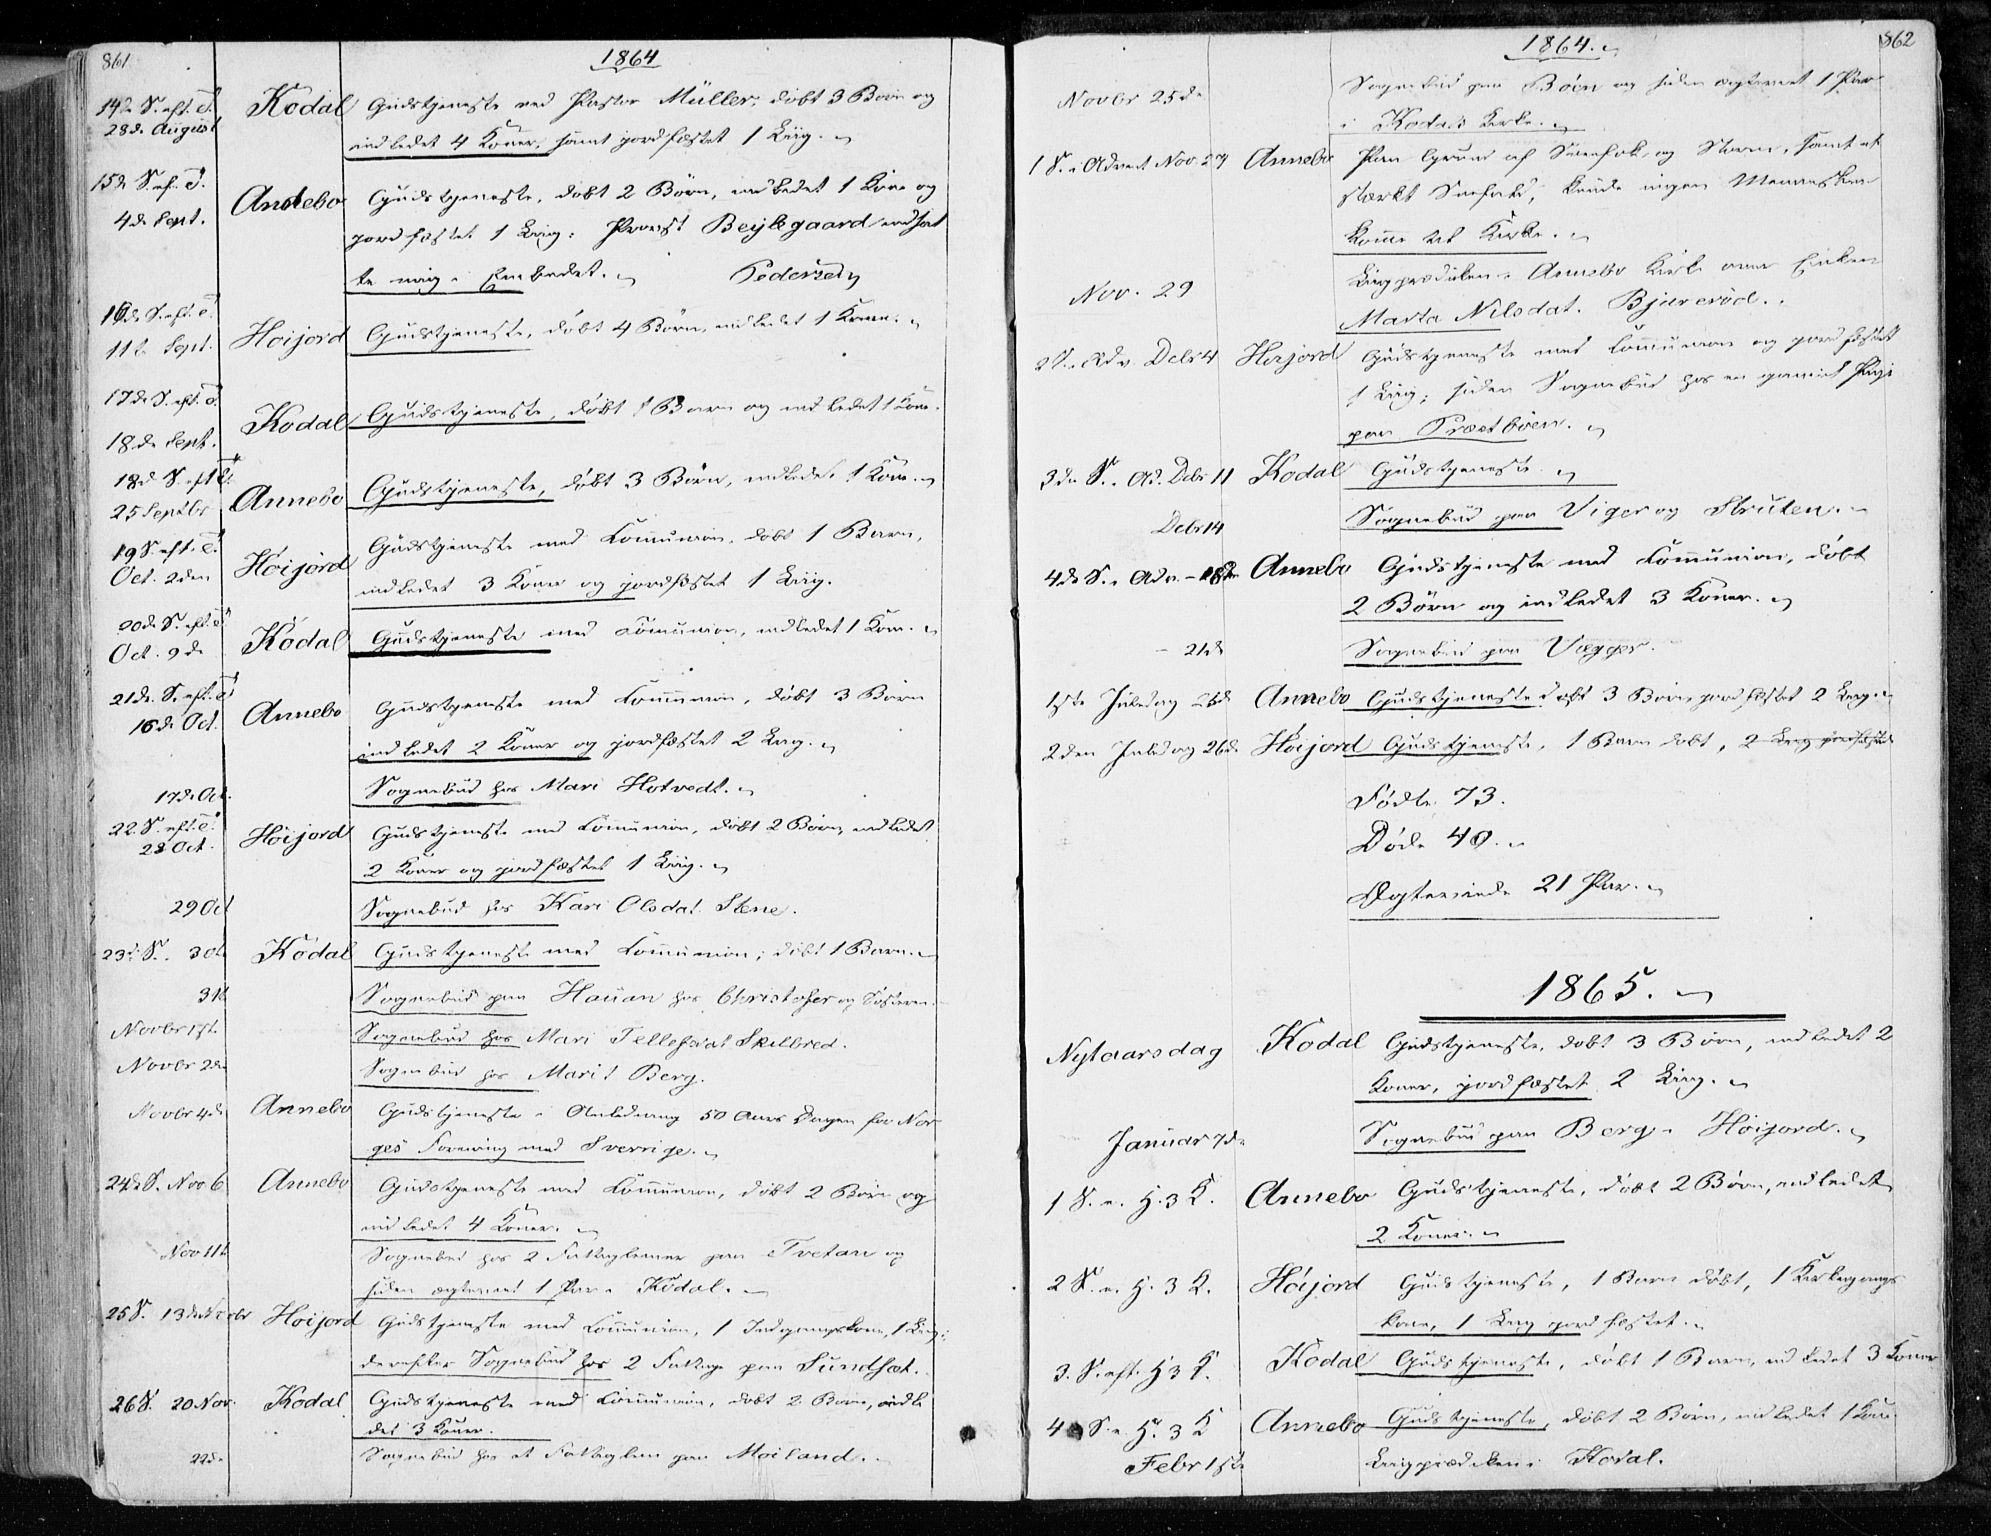 861
1864
14de S. eft. T.
28de August
Kodal Gudstjeneste ved Pastor Müller, døbt 3 Børn og
indledet 4 Koner, samt jordfæstet 1 Liig.
15de S. ef. T.
4de Sept.
Andebo Gudstjeneste, døbt 2 Børn, indledet 1 Kone og
jordfæstet 1 Liig; Provst Bejlegaard indsat
te mig i Embedet. Pedersen
16de S. eft. T.
11te Sept.
Høijord Gudstjeneste, døbt 4 Børn, indledet 1 Kone.
17de S. eft. T.
18de Sept.
Kodal Gudstjeneste, døbt 1 Barn og indledet 1 Kone.
18de S. eft T.
25 Septbr
Annebo Gudstjeneste, døbt 3 Børn, indledet 1 Kone.
19 S. eft. T.
Oct. 2den
Høijord Gudstjeneste med Communion, døbt 1 Barn,
indledet 3 Koner og jordfæstet 1 Liig.
20de S. eft. T.
Oct. 9de
Kodal Gudstjeneste med Communion, indledet 1 Kone.
21de S. eft. T.
16de Oct.
Annebo Gudstjeneste med Communion, døbt 3 Børn
indledet 2 Koner og jordfæstet 2 Liig.
17de Oct.
Sognebud hos Mari Hotvedt.
22. S. eft. T.
23 Oct.
Høijord Gudstjeneste med Communion, døbt 2 Børn, indledet
2 Koner og jordfæstet 1 Liig.
29 Oct
Sognebud hos Kari Olsdat. Stene.
23de S. 30te Kodal Gudstjeneste med Communion; døbt 1 Barn.
31te
Sognebud paa Hauan hos Christofer og Søsteren.
Novbr 1ste
Sognebud hos Mari Tellefsdat Skilbred.
Novbr 2den
Sognebud hos Marit Berg.
Novbr 4de Annebo Gudstjeneste i Anledning 50 Aars Dagen for Nor
ges Forening med Sverrige.
24de S. Nov 6 Annebo Gudstjeneste med Communion, døbt 2 Børn og
indledet 4 Koner.
Nov 11te
Sognebud hos 2 Fattiglemmer paa Tvetan og
siden ægteviet 1 Par i Kodal.
25 S. 13de Novbr Høijord Gudstjeneste med Communion, 1 Indgangskone, 1 Liig;
derefter Sognebud hos 2 Fattige paa Sundset.
26 S. 20 Nov. Kodal Gudstjeneste med Communion, døbt 2 Børn, indle
det 3 Koner.
22de
Sognebud hos et Fattiglem paa Møiland.
862
1864.
Novbr 25de
Sognebud paa Bøen og siden ægteviet 1 Par
i Kodals Kirke.
1 S. i Advent Nov. 27 Annebo Paa Grund af Snefok, og Storm, samt et
stærkt Snefald, kunde ingen Mennesker
komme til Kirke.
Nov. 29
Liigprædiken i Annebo Kirke over Enken
Marta Nilsdat. Bjuerød.
2 S. i Adv. Debr 4 Høijord Gudstjeneste med Communion og jordfæstet
1 Liig; siden Sognebud hos en gammel Pige
paa Præstbøen.
3de S. i Ad. Debr 11 Kodal Gudstjeneste.
Debr 14
Sognebud paa Viger og Struten.
4de S. i Adv. - 18de Annebo Gudstjeneste med Communion, døbt
2 Børn og indledet 3 Koner.
- 21de
Sognebud paa Vegger.
1ste Juledag 25de Annebo Gudstjeneste døbt 3 Børn, jordfæstet 2 Liig.
2den Juledag 26de Høijord Gudstjeneste, 1 Barn døbt, 2 Liig jordfæstede
Fødte 73.
Døde 40.
Ægteviede 21 Par.
1865.
Nytaarsdag Kodal Gudstjeneste, døbt 3 Børn, indledet 2
Koner, jordfæstet 2 Liig.
Januar 7de
Sognebud paa Berg i Høijord.
1 S. e. H. 3 K. Annebo Gudstjeneste, døbt 2 Børn, indledet
2 Koner.
2 S. e. H. 3 K. Høijord Gudstjeneste, 1 Barn døbt, 1 Kirkegangs
kone, 1 Liig jordfæstet.
3. S. eft. H 3 K. Kodal Gudstjeneste, døbt 1 Barn, indledet 3 Koner
4 S. e. H. 3 K Annebo Gudstjeneste, døbt 2 Børn, indledet 1 Kone.
Febr 1ste
Liigprædiken i Kodal.